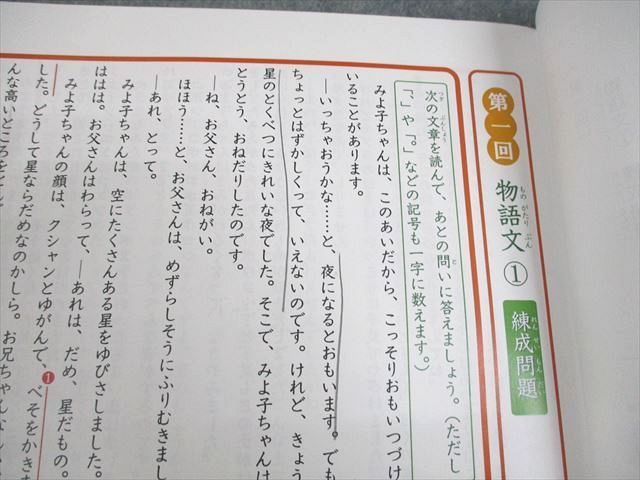 第一回
物語文①
もの がたり ぶん
練成問題
れん せい もん だい
次の文章を読んで、あとの問いに答えましょう。（ただし
つぎ ぶんしょう と
「、」や「。」などの記号も一字に数えます。）
みよ子ちゃんは、このあいだから、こっそりおもいつづけ
いることがあります。
―いっちゃおうかな……と、夜になるとおもいます。でも
ちょっとはずかしくって、いえないのです。けれど、きょう
星のとくべつにきれいな夜でした。そこで、みよ子ちゃんは
とうとう、おねだりしたのです。
―ね、お父さん、おねがい。
ほほう……と、お父さんは、めずらしそうにふりむきまし
―あれ、とって。
みよ子ちゃんは、空にたくさんある星をゆびさしました。
ははは。お父さんはわらって、―あれは、だめ、星だもの。
みよ子ちゃんの顔は、クシャンとゆがんで、❶べそをかきま
した。どうして星ならだめなのかしら。お兄ちゃんなん
んな高いところを